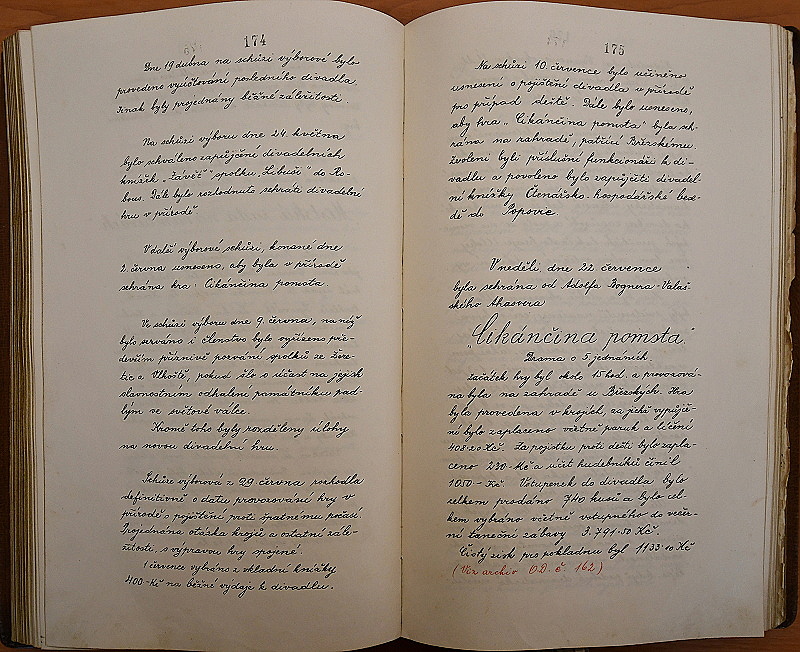 174
Dne 19 dubna na schůzi výborové bylo
provedeno vyúčtování posledního divadla.
Jinak byly projednány běžné záležitosti.
Na schůzi výboru dne 24. května
bylo schváleno zapůjčení divadelních
knížek „Závěť" spolku „Libuši" do Ro-
bous. Dále bylo rozhodnuto sehrát divadelní
hru v přírodě.
V další výborové schůzi, konané dne
2. června usneseno, aby byla v přírodě
sehrána hra: Cikánčina pomsta.
Ve schůzi výboru dne 9. června, na niž
bylo serváno i členstvo bylo vyřízeno pře-
devším příznivě pozvání spolků ze Žere-
tic a Vlhoště, pokud šlo o účast na jejich
slavnostním odhalení památníku pad-
lým ve světové válce.
Kromě toho byly rozděleny úlohy
na novou divadelní hru.
Schůze výborová z 29. června rozhodla
definitivně o datu provozování hry v
přírodě s pojištění proti špatnému počasí
Projednána otázka krojů a ostatní zále-
žitosti, s výpravou hry spojené.
1 července vybráno z vkladní knížky
400-Kč na běžné výdaje k divadlu.
175
Na schůzi 10. července bylo učiněno
usnesení o pojištění divadla v přírodě
pro případ deště. Dále bylo usneseno,
aby hra „Cikánčina pomsta" byla seh-
rána na zahradě, patřící Břízskému.
Zvoleni byli příslušní funkcionáři k di-
vadlu a povoleno bylo zapůjčiti divadel-
ní knížky Čtenářsko-hospodářské bese-
dě do Popovic
V neděli, dne 22 července
byla sehrána od Adolfa Bognera-Valaš-
ského Ahasvera
„Cikánčina pomsta."
Drama o 5 jednáních.
Začátek hry byl okolo 15 hod. a provozová-
na byla na zahradě u Břízských. Hra
byla provedena v krojích, za jichž vypůjče-
ní bylo zaplaceno včetně paruk a líčení
408·20 Kč. Za pojistku proti dešti bylo zapla-
ceno 230-Kč a účet hudebníků činil
1050-Kč. Vstupenek do divadla bylo
celkem prodáno 740 kusů a bylo cel-
kem vybráno včetně vstupného do večer-
ní taneční zábavy 3.791·50 Kč.
Čistý zisk pro pokladnu byl 1133·10 Kč
(Viz archiv OD. č. 162)